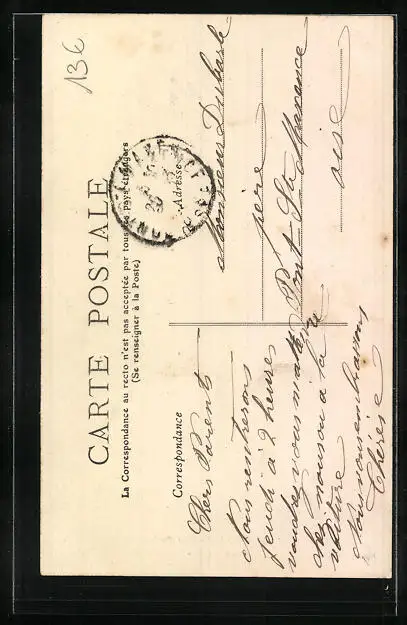 136
CARTE POSTALE
La Correspondance au recto n'est pas acceptée par tous les Pays étrangers
(Se renseigner à la Poste)
Correspondance
Chers Parents
Nous rentrerons
jeudi à 2 heures
voudrez vous m'attendre
chez nous ou a la
voiture
Nous vous embrassons
Thérèse
Adresse
Monsieur Duharle
père
Pont Ste Maxence
oise